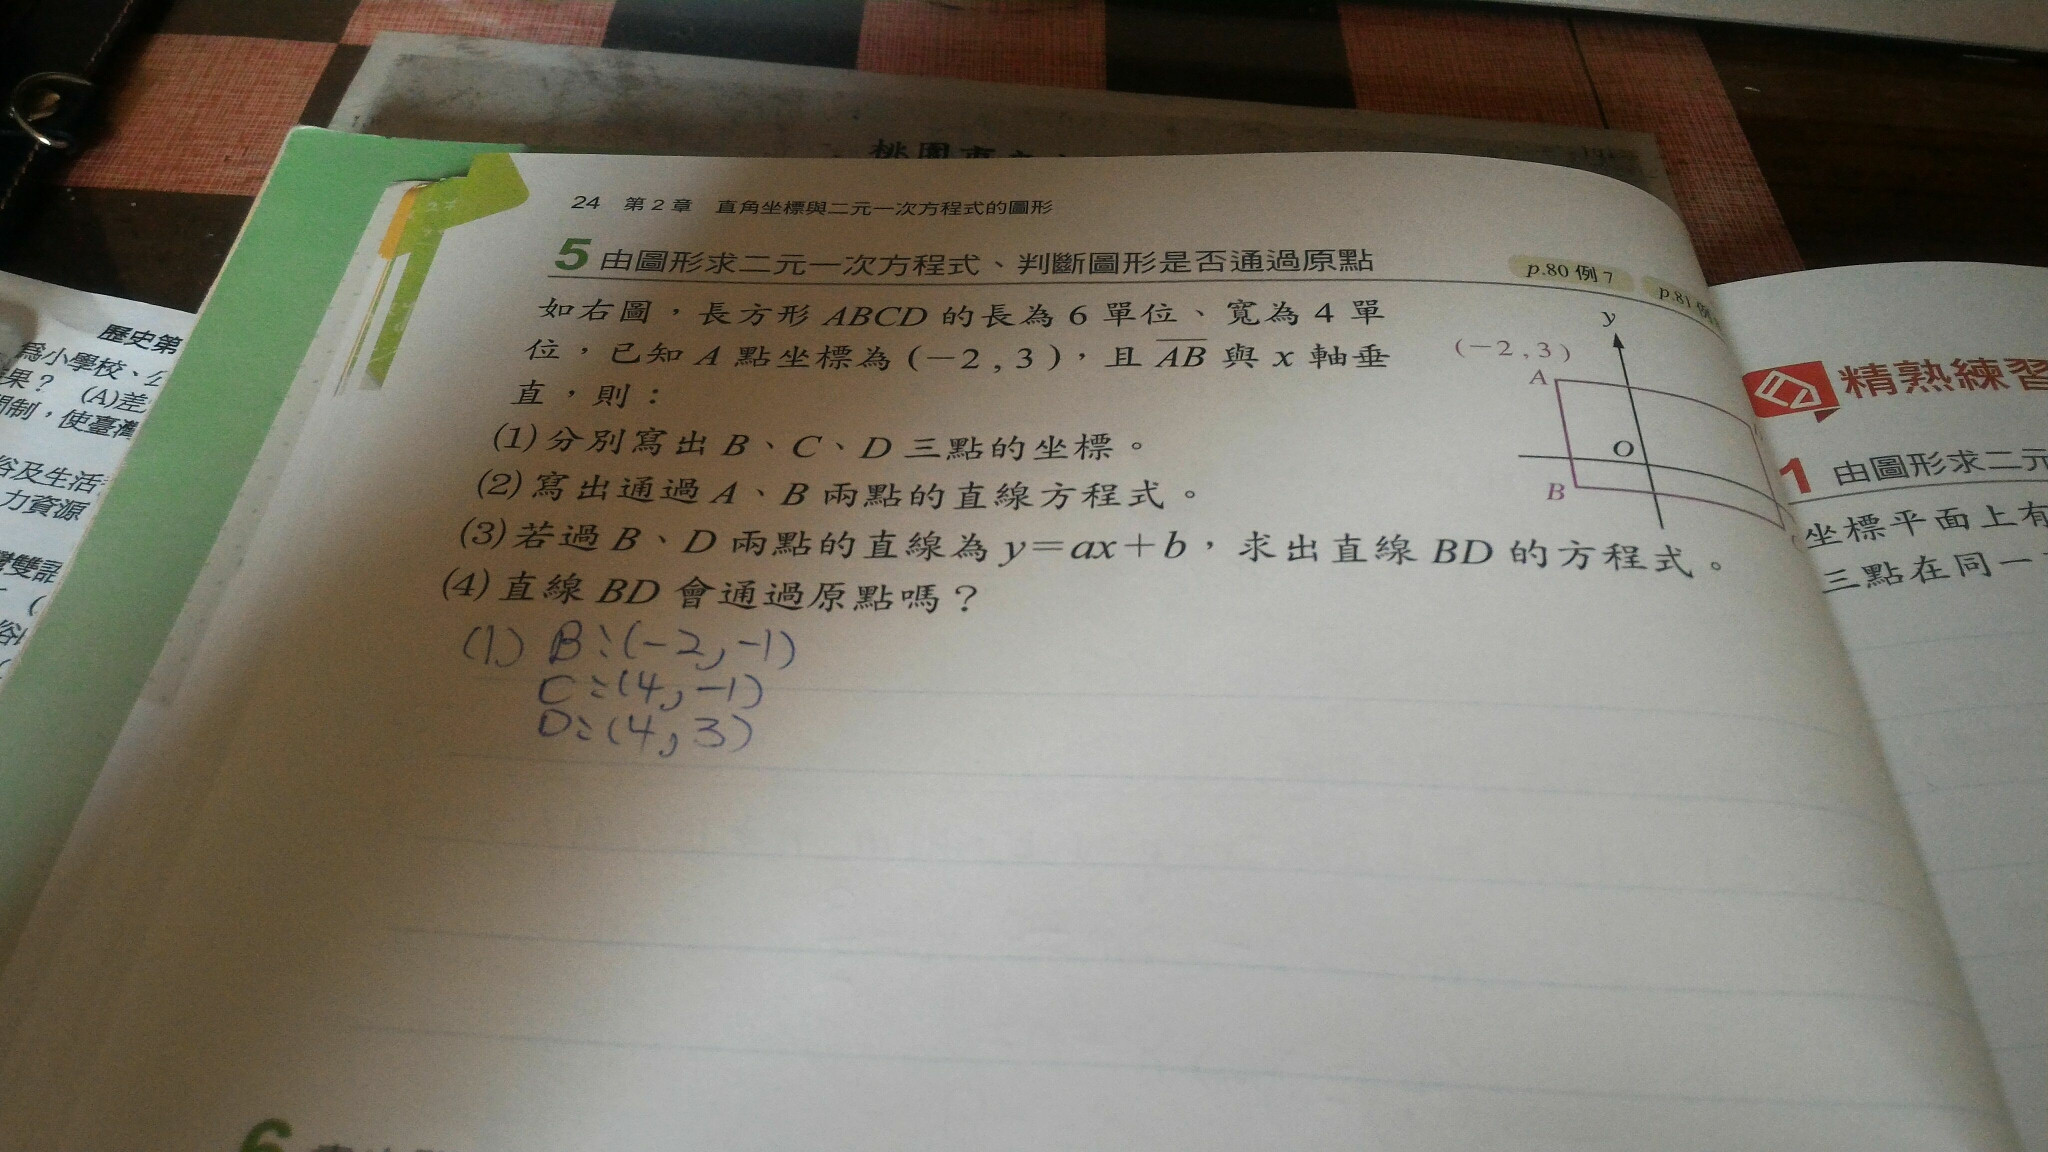 桃園市
24 第2章 直角坐標與二元一次方程式的圖形
5 由圖形求二元一次方程式、判斷圖形是否通過原點
p.80 例7
p.81 例
如右圖,長方形 ABCD 的長為 6 單位、寬為 4 單
位,已知 A 點坐標為 (−2 , 3 ),且 AB 與 x 軸垂
直,則:
(1)分別寫出 B、C、D 三點的坐標。
(2)寫出通過 A、B 兩點的直線方程式。
(3)若過 B、D 兩點的直線為 y=ax+b,求出直線 BD 的方程式。
(4)直線 BD 會通過原點嗎?
y
(−2 , 3 )
A
O
B
(1) B:(-2,-1)
C:(4,-1)
D:(4,3)
6
歷史第
為小學校、公
果? (A)差
制,使臺灣
俗及生活
力資源
雙語
精熟練習
1 由圖形求二元
坐標平面上有
三點在同一